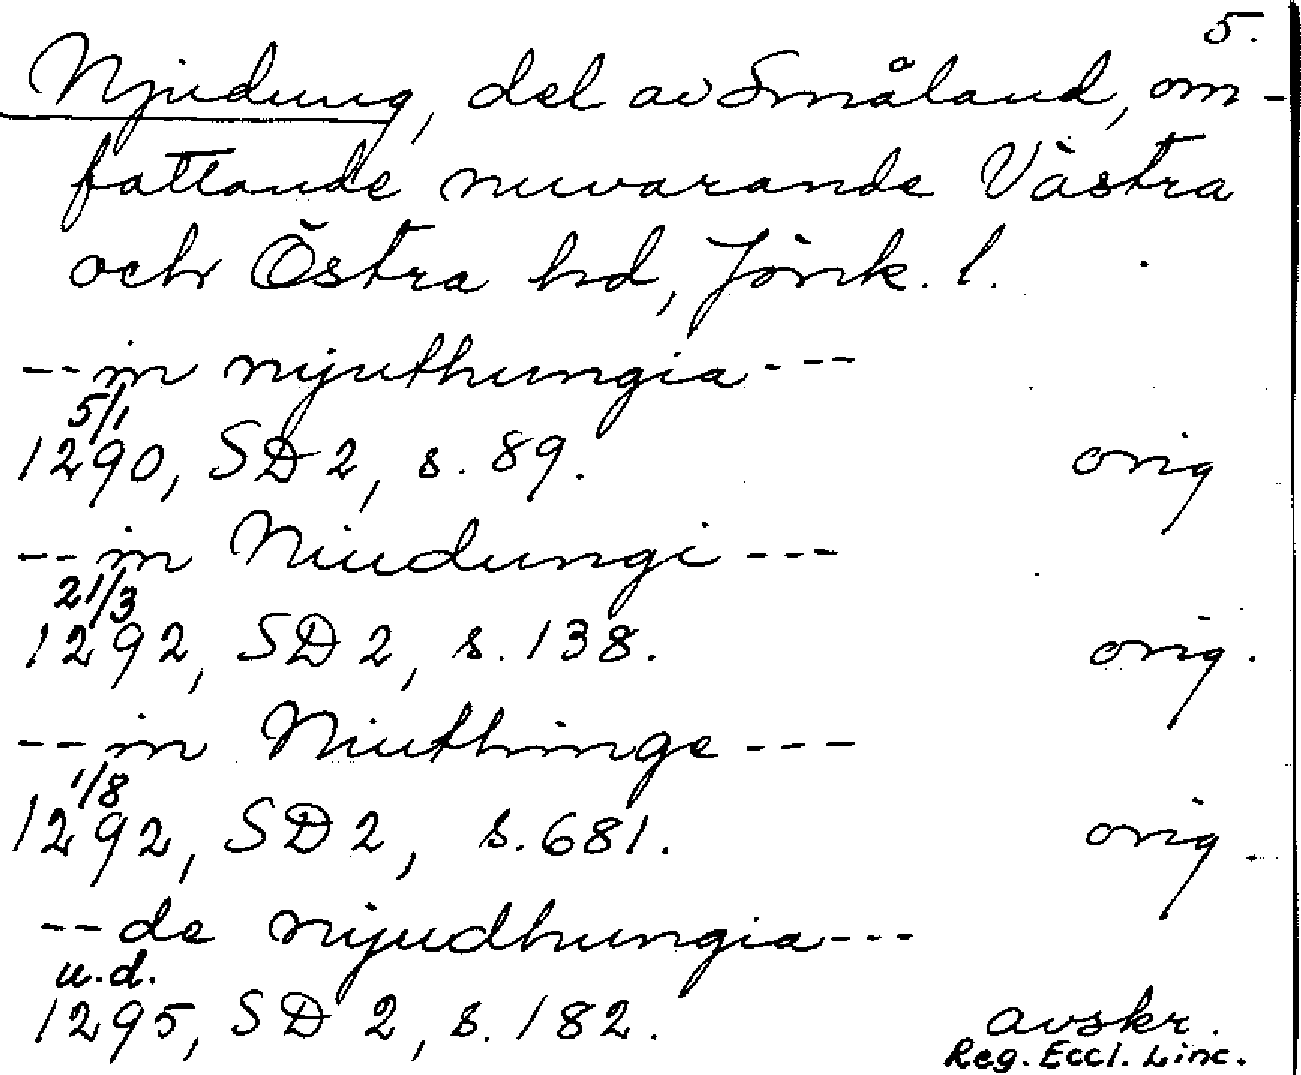 5.
Njudung, del av Småland, om-
fattande nuvarande Västra
och Östra hd, Jönk. l.
--in nijuthungia---
5/1
1290, SD 2, s. 89. orig
--in Niudungi---
21/3
1292, SD 2, s. 138. orig.
--in Niuthinge---
1/8
1292, SD 2, s. 681. orig
--de nijudhungia---
u.d.
1295, SD 2, s. 182. avskr.
Reg. Eccl. Linc.